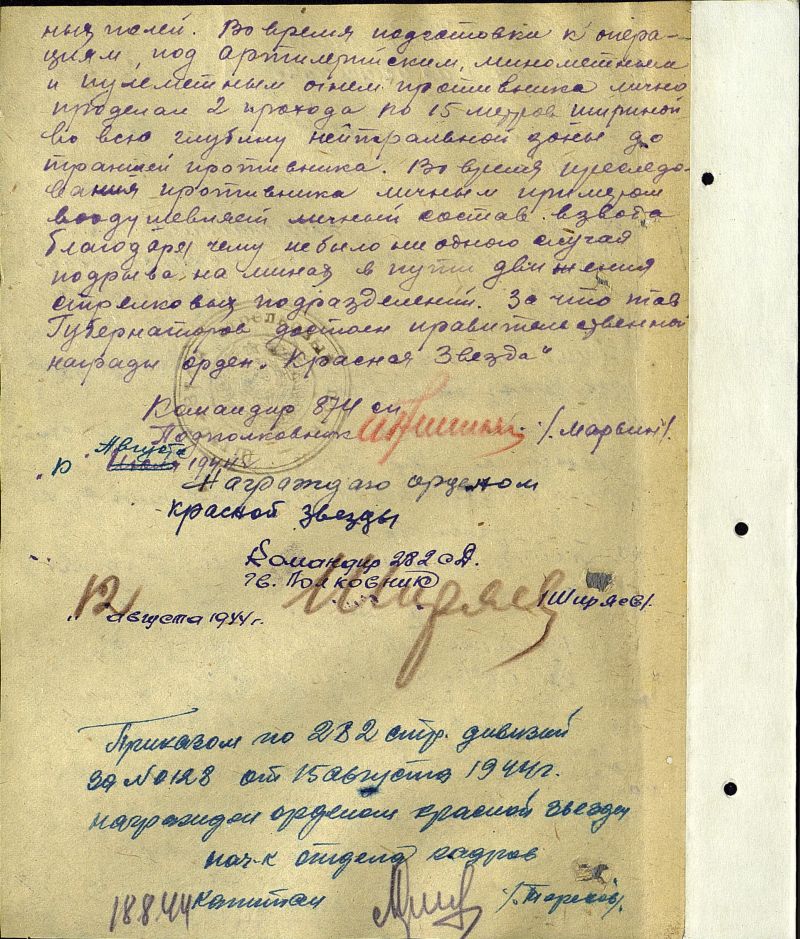 ных полей. Во время подготовки к опера-
циям, под артилерийским, минометным
и пулеметным огнем противника лично
проделал 2 прохода по 15 метров шириной
во всю глубину нейтральной зоны до
траншей противника. Во время преследо-
вания противника личным примером
воодушевляет личный состав взвода
благодаря чему небыло ни одного случая
подрыва на минах в пути движения
стрелковых подразделений. За что тов
Губернаторов достоен правительственной
награды орден „Красная Звезда"
Командир 874 сп
Подполковник /Марьин/.
Августа
1944
Награждаю орденом
красной звезды
Командир 282 сд.
Гв. Полковник Ширяев /Ширяев/.
„12" августа 1944 г.
Приказом по 282 стр. дивизии
за № 0128 от 15 августа 1944 г.
награжден орденом красной звезды
нач-к отдела кадров
капитан /Терехов/.
18.8.44